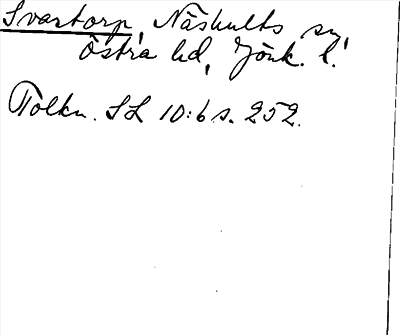 Svartorp, Näshults sn,
Östra hd, Jönk. l.
Tolkn. SL 10:6 s. 252.